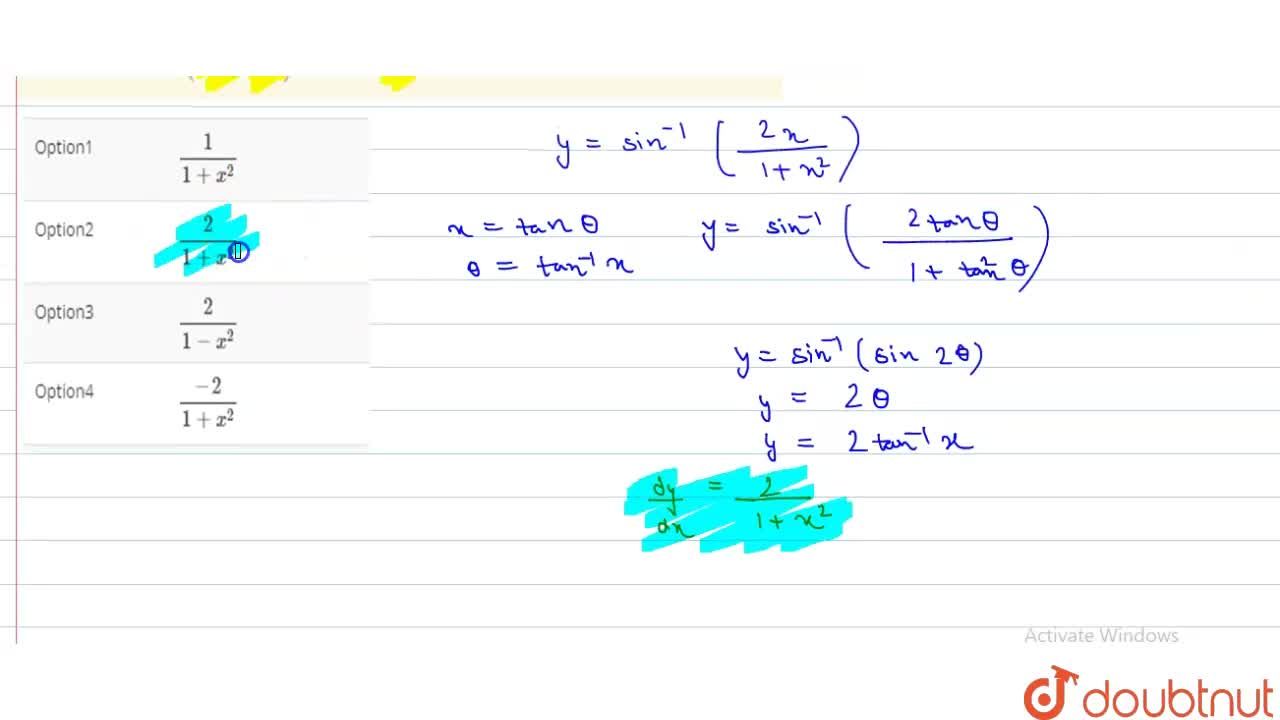 Option1 1/(1 + x²)
Option2 2/(1 + x²)
Option3 2/(1 − x²)
Option4 −2/(1 + x²)
y = sin⁻¹ (2x/(1 + x²))
x = tan θ
θ = tan⁻¹ x
y = sin⁻¹ (2 tan θ/(1 + tan² θ))
y = sin⁻¹ (sin 2θ)
y = 2θ
y = 2 tan⁻¹ x
dy/dx = 2/(1 + x²)
Activate Windows
doubtnut